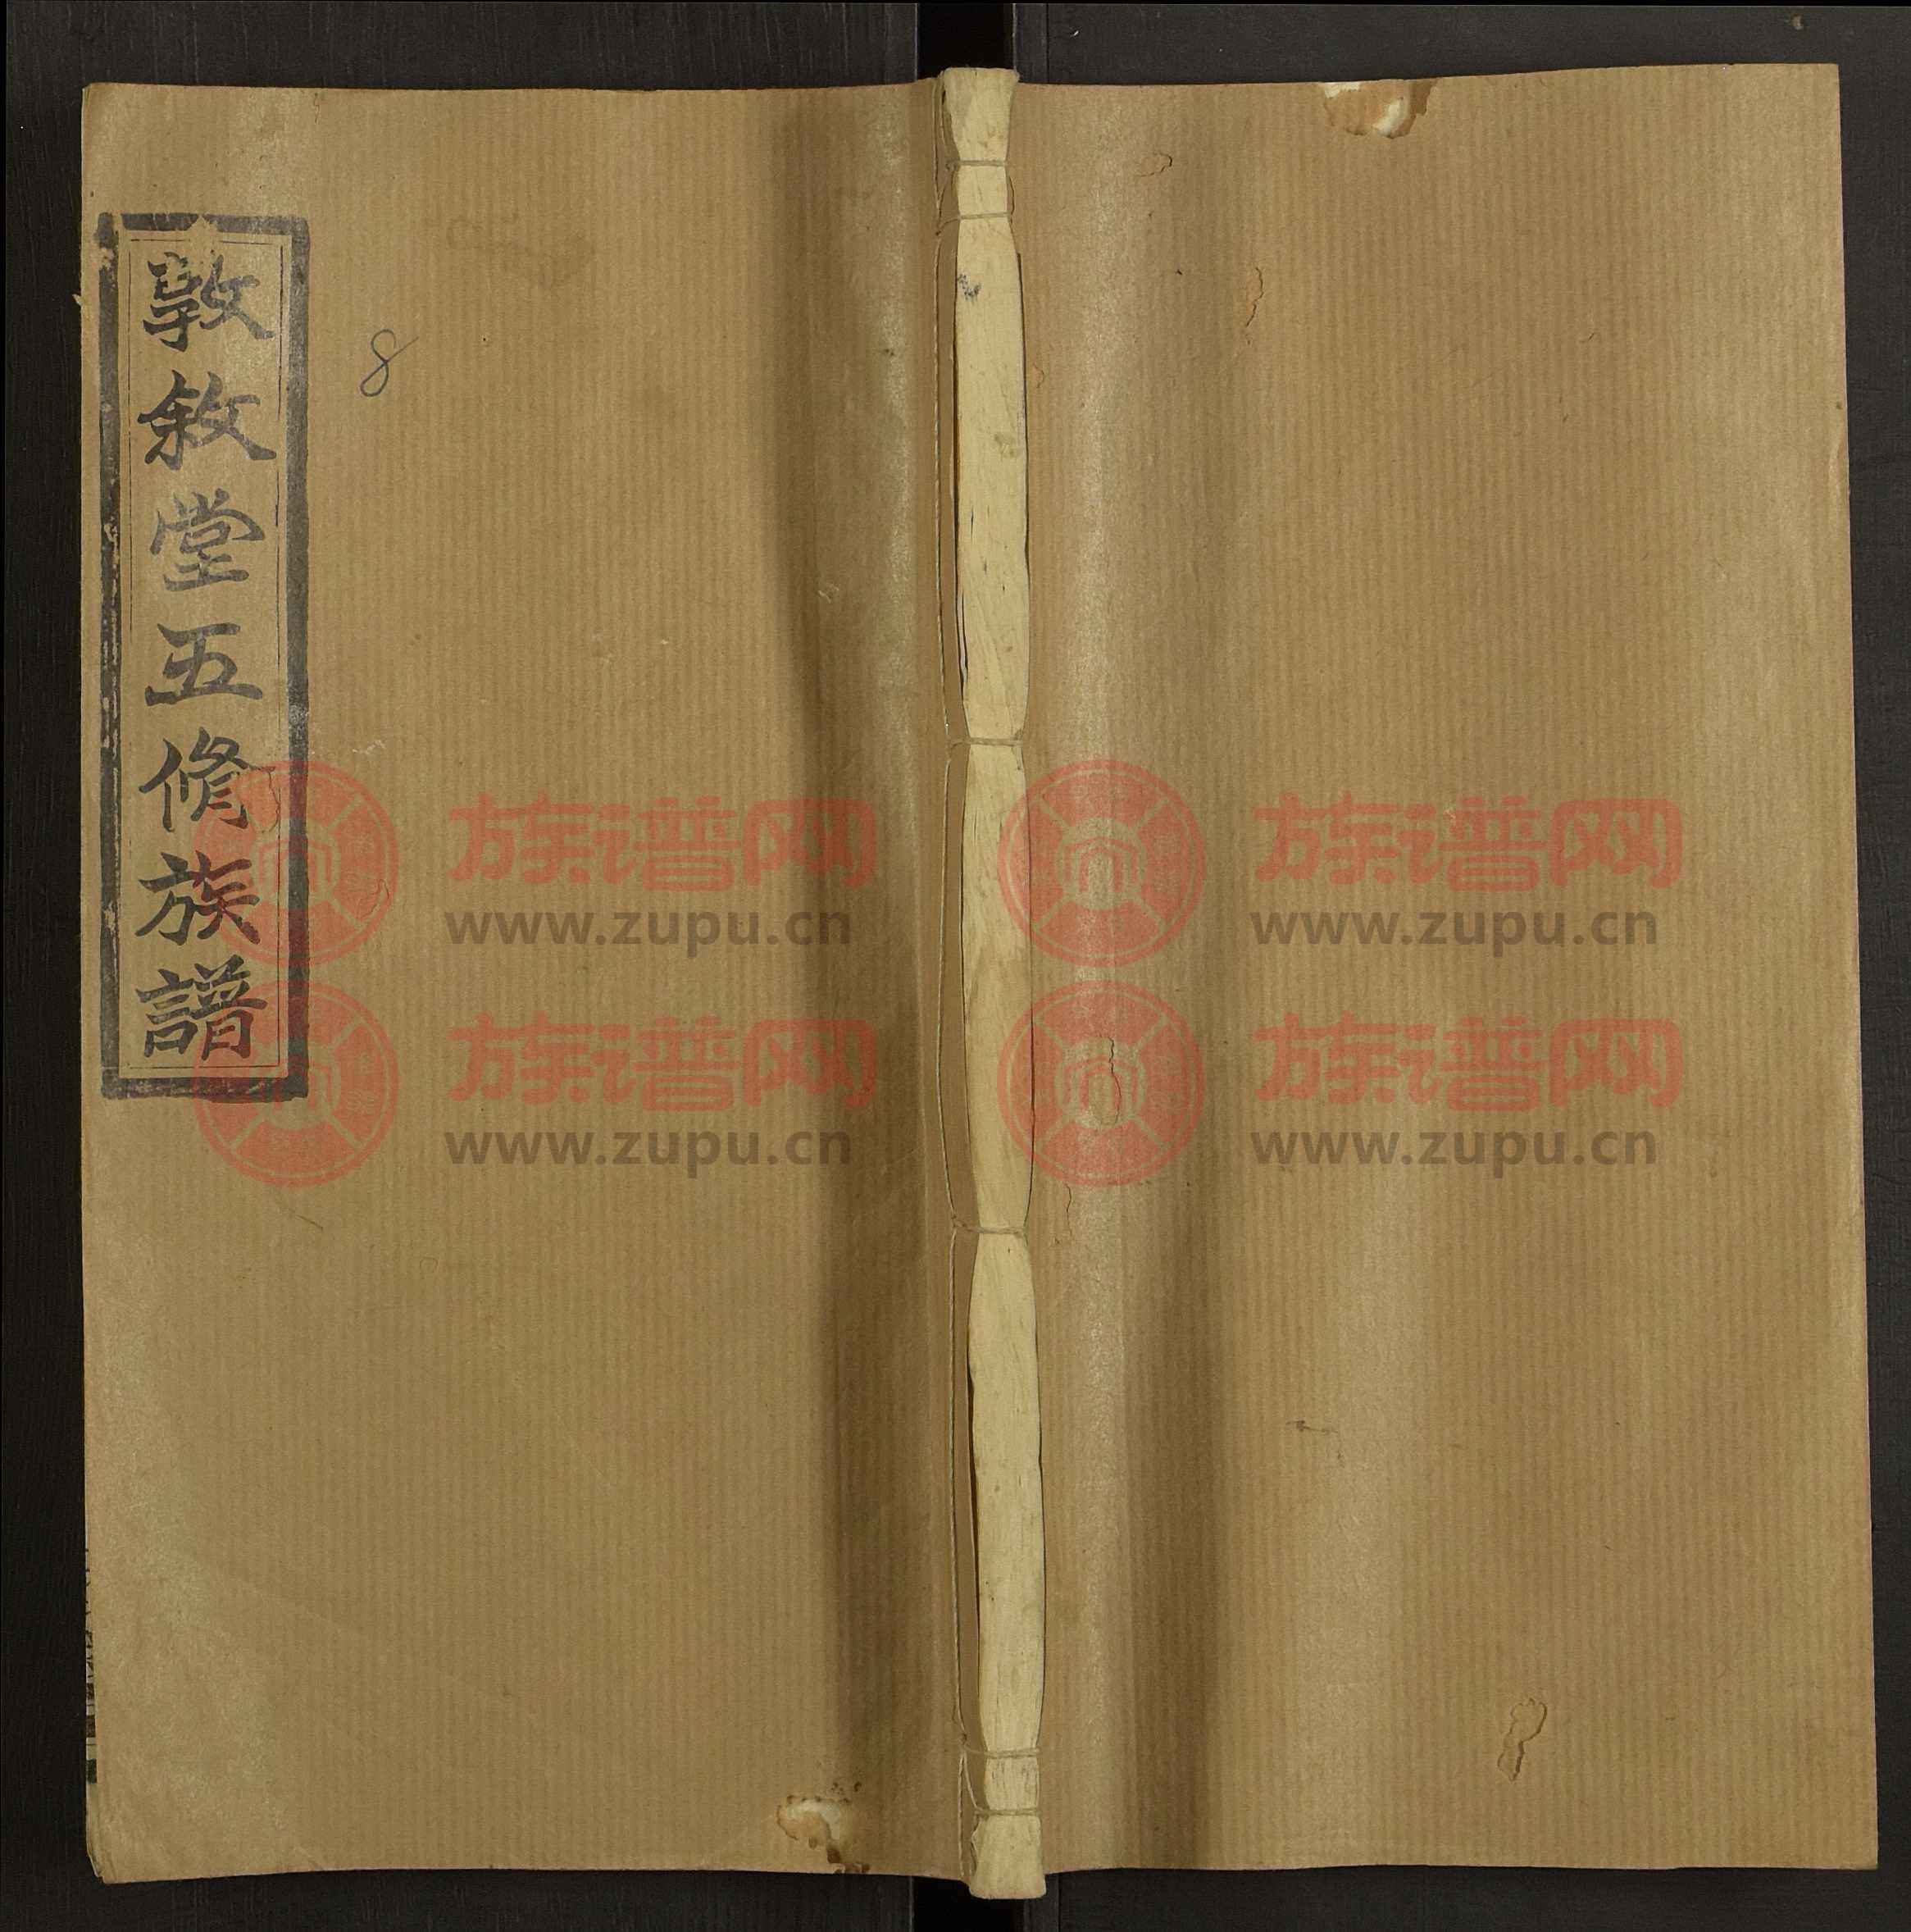 敦敘堂五修族譜
8
族谱网
www.zupu.cn
族谱网
www.zupu.cn
族谱网
www.zupu.cn
族谱网
www.zupu.cn